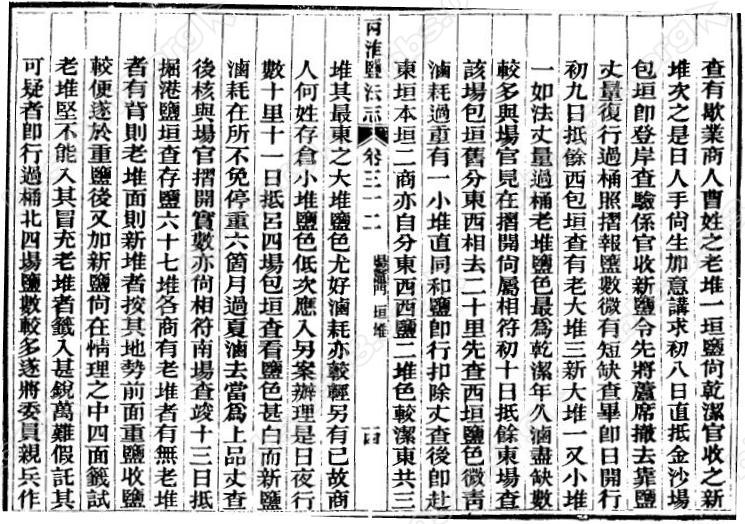 查有歇業商人曹姓之老堆一垣鹽尙乾潔官收之新
堆次之是日人手尙生加意講求初八日直抵金沙場
包垣卽登岸查驗係官收新鹽令先將蘆席撤去靠鹽
丈量復行過桶照摺報鹽數微有短缺查畢卽日開行
初九日抵餘西包垣查有老大堆三新大堆一又小堆
一如法丈量過桶老堆鹽色最爲乾潔年久滷盡缺數
較多與場官見在摺開尙屬相符初十日抵餘東場查
該場包垣舊分東西相去二十里先查西垣鹽色微靑
滷耗過重有一小堆直同和鹽卽行扣除丈查後卽赴
東垣本垣二商亦自分東西西鹽二堆色較潔東共三
兩淮鹽法志 卷三十二 垣堆 十四
堆其最東之大堆鹽色尤好滷耗亦較輕另有已故商
人何姓存倉小堆鹽色低次應入另案辦理是日夜行
數十里十一日抵呂四場包垣查看鹽色甚白而新鹽
滷耗在所不免停重六箇月過夏滷去當爲上品丈查
後核與場官摺開實數亦尙相符南場查竣十三日抵
掘港鹽垣查存鹽六十七堆各商有老堆者有無老堆
者有背則老堆面則新堆者按其地勢前面重鹽收鹽
較便遂於重鹽後又加新鹽尙在情理之中四面籤試
老堆堅不能入其冒充老堆者籤入甚銳萬難假託其
可疑者卽行過桶北四場鹽數較多遂將委員親兵作